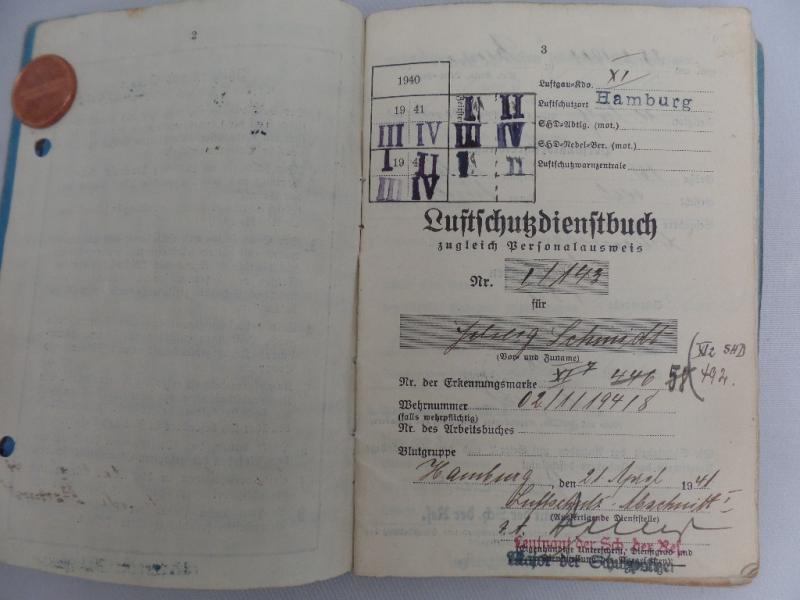 2
3
1940
1941
I II
III IV III IV
I 194 II I II
III IV
Luftgau-Kdo. XI
Luftschutzort Hamburg
SHD-Abtlg. (mot.)
SHD-Nebel-Ber. (mot.)
Luftschutzwarnzentrale
Luftschutzdienstbuch
zugleich Personalausweis
Nr. I/143
für
Schmidt
(Vor- und Zuname)
Nr. der Erkennungsmarke XI 7 746 58 (XI2 SHD
492.
Wehrnummer 02/11/194/8
(falls wehrpflichtig)
Nr. des Arbeitsbuches
Blutgruppe
Hamburg, den 21 April 1941
Luftschutz Abschnitt I
(Ausfertigende Dienststelle)
Leutnant der Sch. der Res.
(Eigenhändige Unterschrift, Dienstgrad und
Major der Schutzpolizei